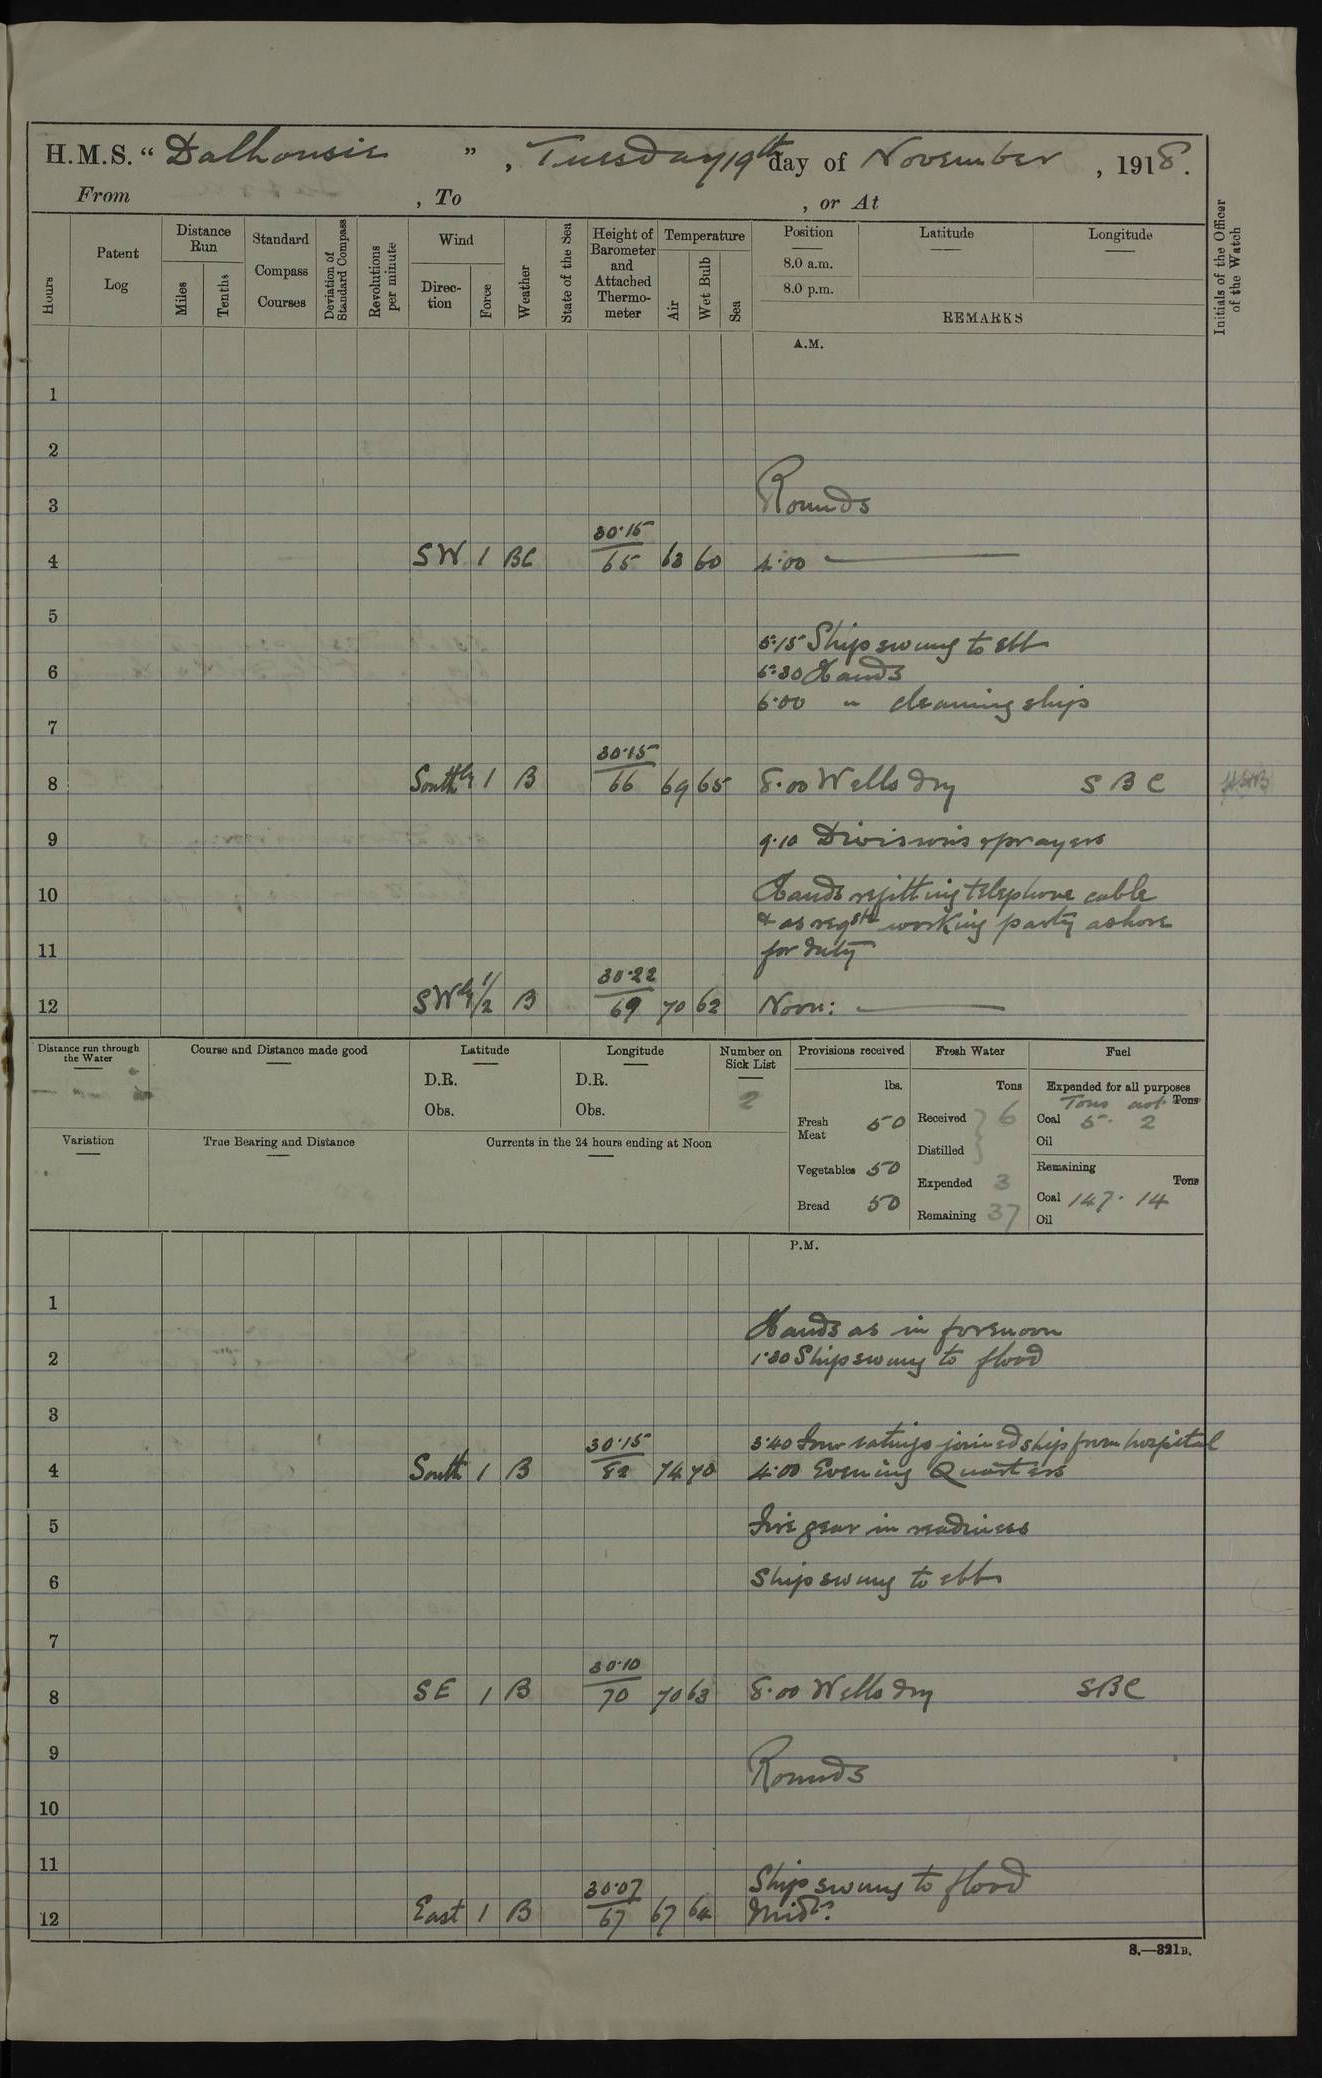 H.M.S. “ Dalhousie ” , Tuesday 19th day of November , 1918.
From , To , or At
Hours
Patent Log
Distance Run
Miles
Tenths
Standard Compass Courses
Deviation of Standard Compass
Revolutions per minute
Wind
Direction
Force
Weather
State of the Sea
Height of Barometer and Attached Thermometer
Temperature
Air
Wet Bulb
Sea
Position
8.0 a.m.
8.0 p.m.
Latitude
Longitude
REMARKS
Initials of the Officer of the Watch
A.M.
1
2
3 Rounds
4 SW 1 BC 30·15 65 63 60 4·00
5
5·15 Ship swung to ebb
6 5·30 Hands
6·00 " cleaning ships
7
8 Southly 1 B 30·15 66 69 65 8·00 Wells dry SBC
9 9·10 Divisions & prayers
10 Hands refitting telephone cable
& as reqste working party ashore
11 for duty
12 SWly 1/2 B 30·22 69 70 62 Noon:
Distance run through the Water
Course and Distance made good
Latitude
D.R.
Obs.
Longitude
D.R.
Obs.
Number on Sick List
2
Provisions received
lbs.
Fresh Meat 50
Vegetables 50
Bread 50
Fresh Water
Tons
Received 6
Distilled
Expended 3
Remaining 37
Fuel
Expended for all purposes
Tons cwt. Tons
Coal 5· 2
Oil
Remaining
Tons
Coal 147· 14
Oil
Variation
True Bearing and Distance
Currents in the 24 hours ending at Noon
P.M.
1
Hands as in forenoon
2 1·30 Ship swung to flood
3
3·40 Four ratings joined ship from hospital
4 South 1 B 30·15 82 74 70 4·00 Evening Quarters
5 Fire gear in readiness
6 Ship swung to ebb
7
8 SE 1 B 30·10 70 70 63 8·00 Wells dry SBC
9 Rounds
10
11 Ship swung to flood
12 East 1 B 30·07 67 67 64 Midt:
S.—321B.